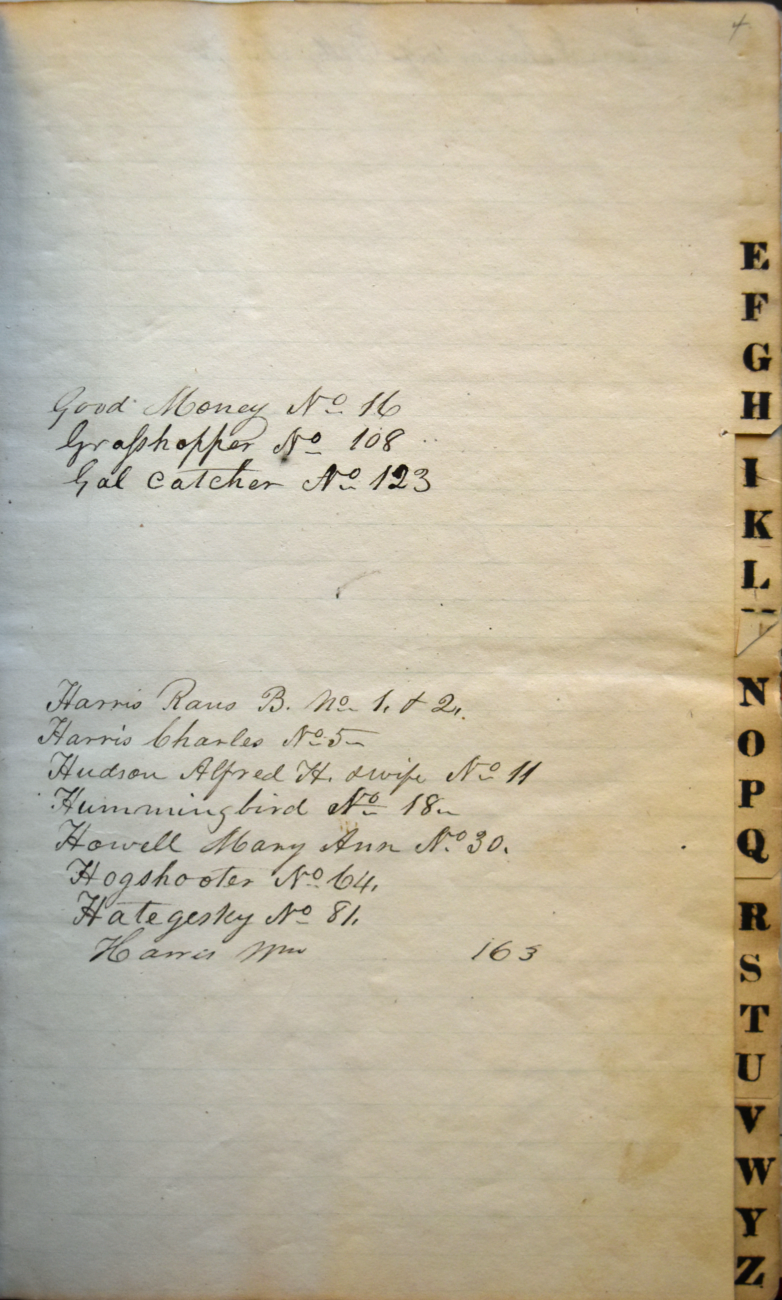 4
Good Money No. 16
Grasshopper No 108
Gal Catcher No. 123
Harris Raus B. No. 1. & 2.
Harris Charles No. 5
Hudson Alfred H. & wife No. 11
Hummingbird No. 18
Howell Mary Ann No. 30.
Hogshooter No. 64.
Hategesky No. 81.
Harris Wm 163
E
F
G
H
I
K
L
N
O
P
Q
R
S
T
U
V
W
Y
Z